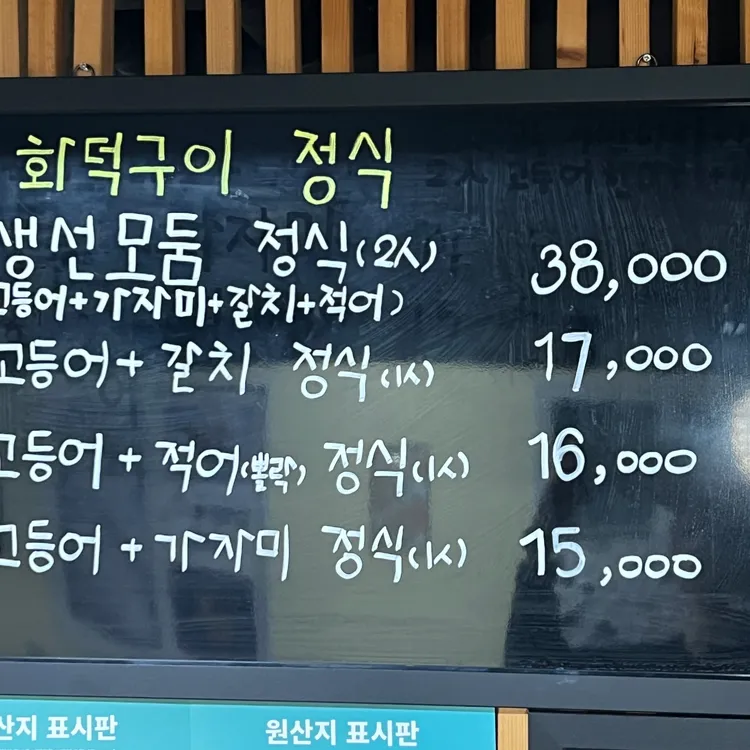 화덕구이 정식
생선모둠 정식(2人) 38,000
고등어+가자미+갈치+적어)
고등어+갈치 정식(1人) 17,000
고등어+적어(뽈락) 정식(1人) 16,000
고등어+가자미 정식(1人) 15,000
산지 표시판 원산지 표시판